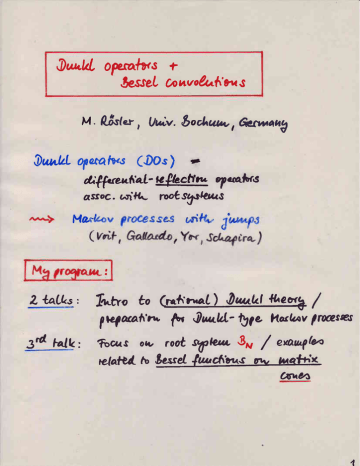 Dunkl operators +
Bessel convolutions
M. Rösler, Univ. Bochum, Germany
Dunkl operators (DOs) =
differential-reflection operators
assoc. with root systems
⇝ Markov processes with jumps
(Voit, Gallardo, Yor, Schapira)
My program:
2 talks: Intro to (rational) Dunkl theory /
preparation for Dunkl-type Markov processes
3rd talk: Focus on root system B_N / examples
related to Bessel functions on matrix
cones
1